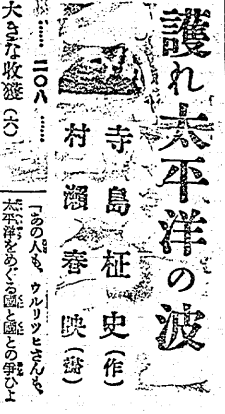 護れ太平洋の波
寺島柾史(作)
村瀬春映(畫)
…… 二〇八 ……
大きな收獲(六)
「あの人も、ウルリツヒさんも、
太平洋をめぐる國と國との爭ひよ